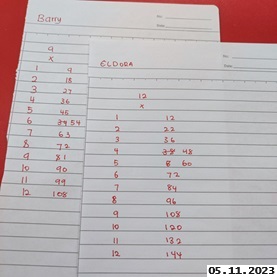 Barry
9
x
1 9
2 18
3 27
4 36
5 45
6 54
7 63
8 72
9 81
10 90
11 99
12 108
No:
Date:
ELDORA
12
x
1 12
2 22
3 36
4 38 48
5 8 60
6 72
7 84
8 96
9 108
10 120
11 132
12 144
05.11.2023